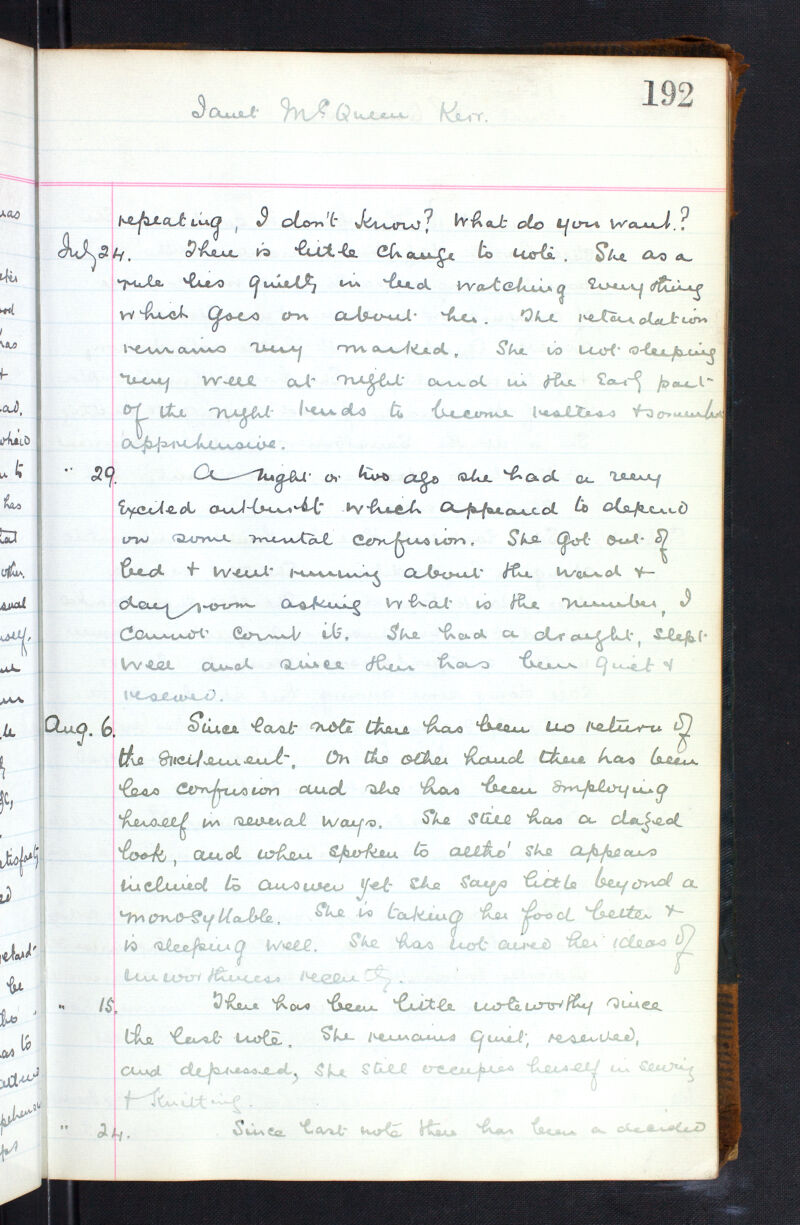 192
Janet McQueen Kerr.
repeating, I don't know? What do you want?
July 24. There is little change to note. She as a
rule lies quietly in bed watching everything
which goes on about her. The retardation
remains very marked. She is not sleeping
very well at night and in the early part
of the night tends to become restless & somewhat
apprehensive.
" 29. A night or two ago she had a very
excited outburst which appeared to depend
on some mental confusion. She got out of
bed & went running about the ward &
day room asking what is the number, I
cannot count it. She had a draught, slept
well and since then has been quiet &
reserved.
Aug. 6. Since last note there has been no return of
the excitement. On the other hand there has been
less confusion and she has been employing
herself in several ways. She still has a dazed
look, and when spoken to altho' she appears
inclined to answer yet she says little beyond a
monosyllable. She is taking her food better &
is sleeping well. She has not aired her ideas of
unworthiness recently.
" 15. There has been little noteworthy since
the last note. She remains quiet, reserved,
and depressed, she still occupies herself in sewing
& knitting.
" 24. Since last note there has been a decided